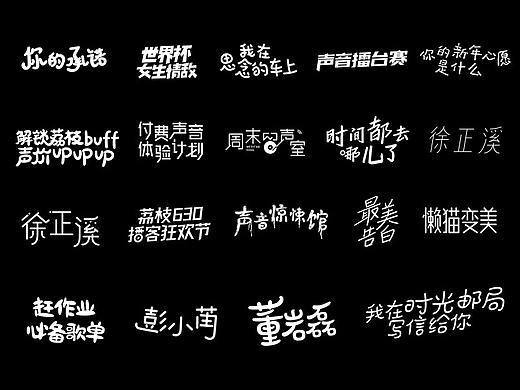 你的承诺
世界杯
女生情敌
我在
思念的车上
声音擂台赛
你的新年心愿
是什么
解锁荔枝buff
声价upupup
付费声音
体验计划
周末留声室
时间都去
哪儿了
徐正溪
徐正溪
荔枝630
播客狂欢节
声音惊悚馆
最美
告白
懒猫变美
赶作业
必备歌单
彭小苒
董岩磊
我在时光邮局
写信给你